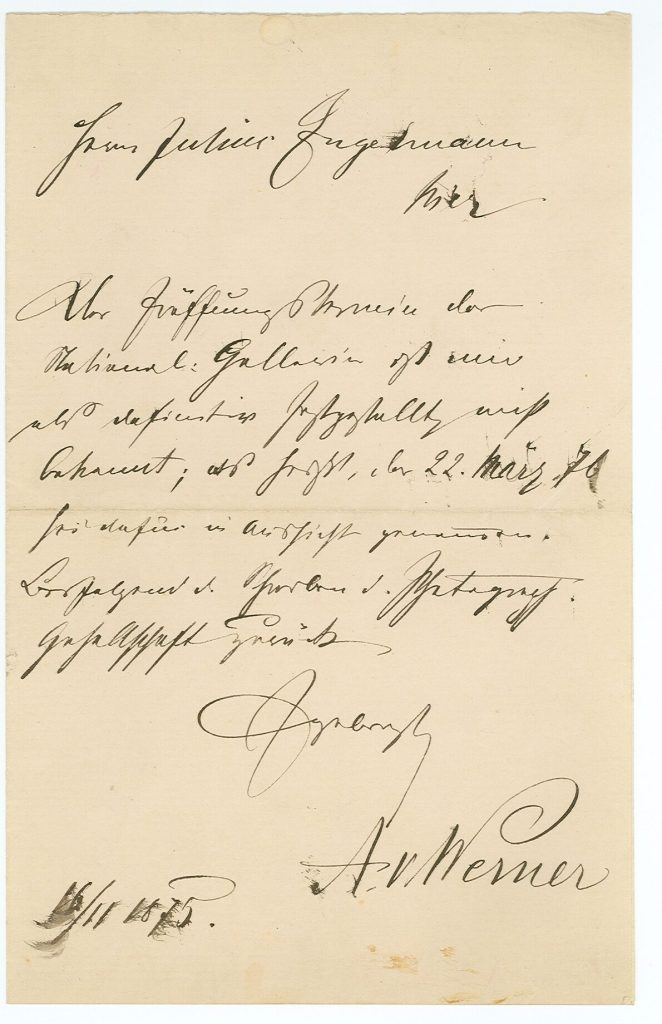 Herrn Julius Engelmann
hier
Der Eröffnungstermin der
National-Gallerie ist mir
als definitiv festgestellt nicht
bekannt; es heißt, der 22. März 76
sei dafür in Aussicht genommen.
Beifolgend d. Schreiben d. Photograph.
Gesellschaft zurück
Ergebenst
A. v Werner
16/11 1875.